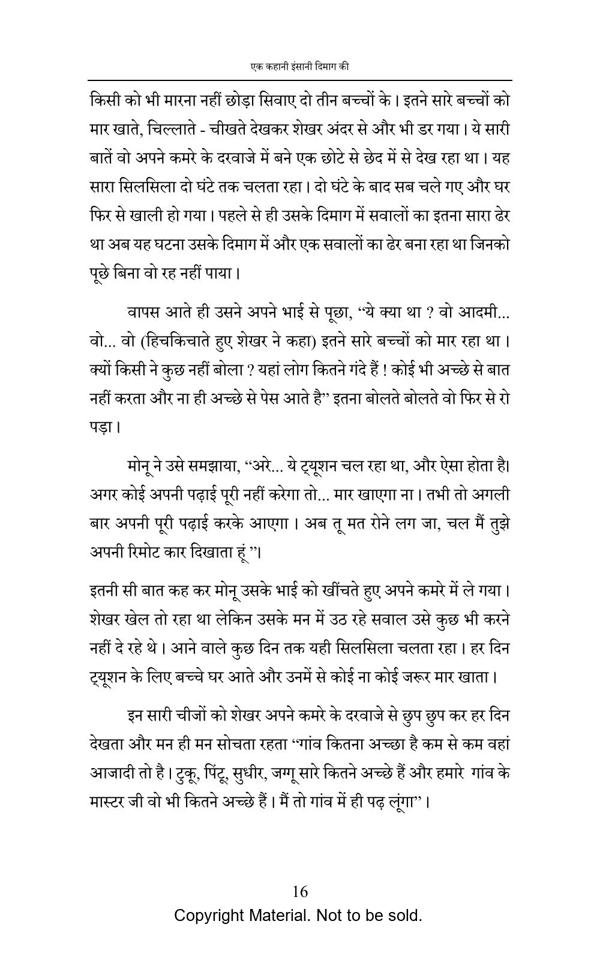 एक कहानी इंसानी दिमाग की
किसी को भी मारना नहीं छोड़ा सिवाए दो तीन बच्चों के । इतने सारे बच्चों को
मार खाते, चिल्लाते - चीखते देखकर शेखर अंदर से और भी डर गया । ये सारी
बातें वो अपने कमरे के दरवाजे में बने एक छोटे से छेद में से देख रहा था । यह
सारा सिलसिला दो घंटे तक चलता रहा । दो घंटे के बाद सब चले गए और घर
फिर से खाली हो गया । पहले से ही उसके दिमाग में सवालों का इतना सारा ढेर
था अब यह घटना उसके दिमाग में और एक सवालों का ढेर बना रहा था जिनको
पूछे बिना वो रह नहीं पाया ।
वापस आते ही उसने अपने भाई से पूछा, “ये क्या था ? वो आदमी...
वो... वो (हिचकिचाते हुए शेखर ने कहा) इतने सारे बच्चों को मार रहा था ।
क्यों किसी ने कुछ नहीं बोला ? यहां लोग कितने गंदे हैं ! कोई भी अच्छे से बात
नहीं करता और ना ही अच्छे से पेस आते है” इतना बोलते बोलते वो फिर से रो
पड़ा ।
मोनू ने उसे समझाया, “अरे... ये ट्यूशन चल रहा था, और ऐसा होता है।
अगर कोई अपनी पढ़ाई पूरी नहीं करेगा तो... मार खाएगा ना । तभी तो अगली
बार अपनी पूरी पढ़ाई करके आएगा । अब तू मत रोने लग जा, चल मैं तुझे
अपनी रिमोट कार दिखाता हूं ”।
इतनी सी बात कह कर मोनू उसके भाई को खींचते हुए अपने कमरे में ले गया ।
शेखर खेल तो रहा था लेकिन उसके मन में उठ रहे सवाल उसे कुछ भी करने
नहीं दे रहे थे । आने वाले कुछ दिन तक यही सिलसिला चलता रहा । हर दिन
ट्यूशन के लिए बच्चे घर आते और उनमें से कोई ना कोई जरूर मार खाता ।
इन सारी चीजों को शेखर अपने कमरे के दरवाजे से छुप छुप कर हर दिन
देखता और मन ही मन सोचता रहता “गांव कितना अच्छा है कम से कम वहां
आजादी तो है । टुकू, पिंटू, सुधीर, जग्गू सारे कितने अच्छे हैं और हमारे गांव के
मास्टर जी वो भी कितने अच्छे हैं । मैं तो गांव में ही पढ़ लूंगा” ।
16
Copyright Material. Not to be sold.